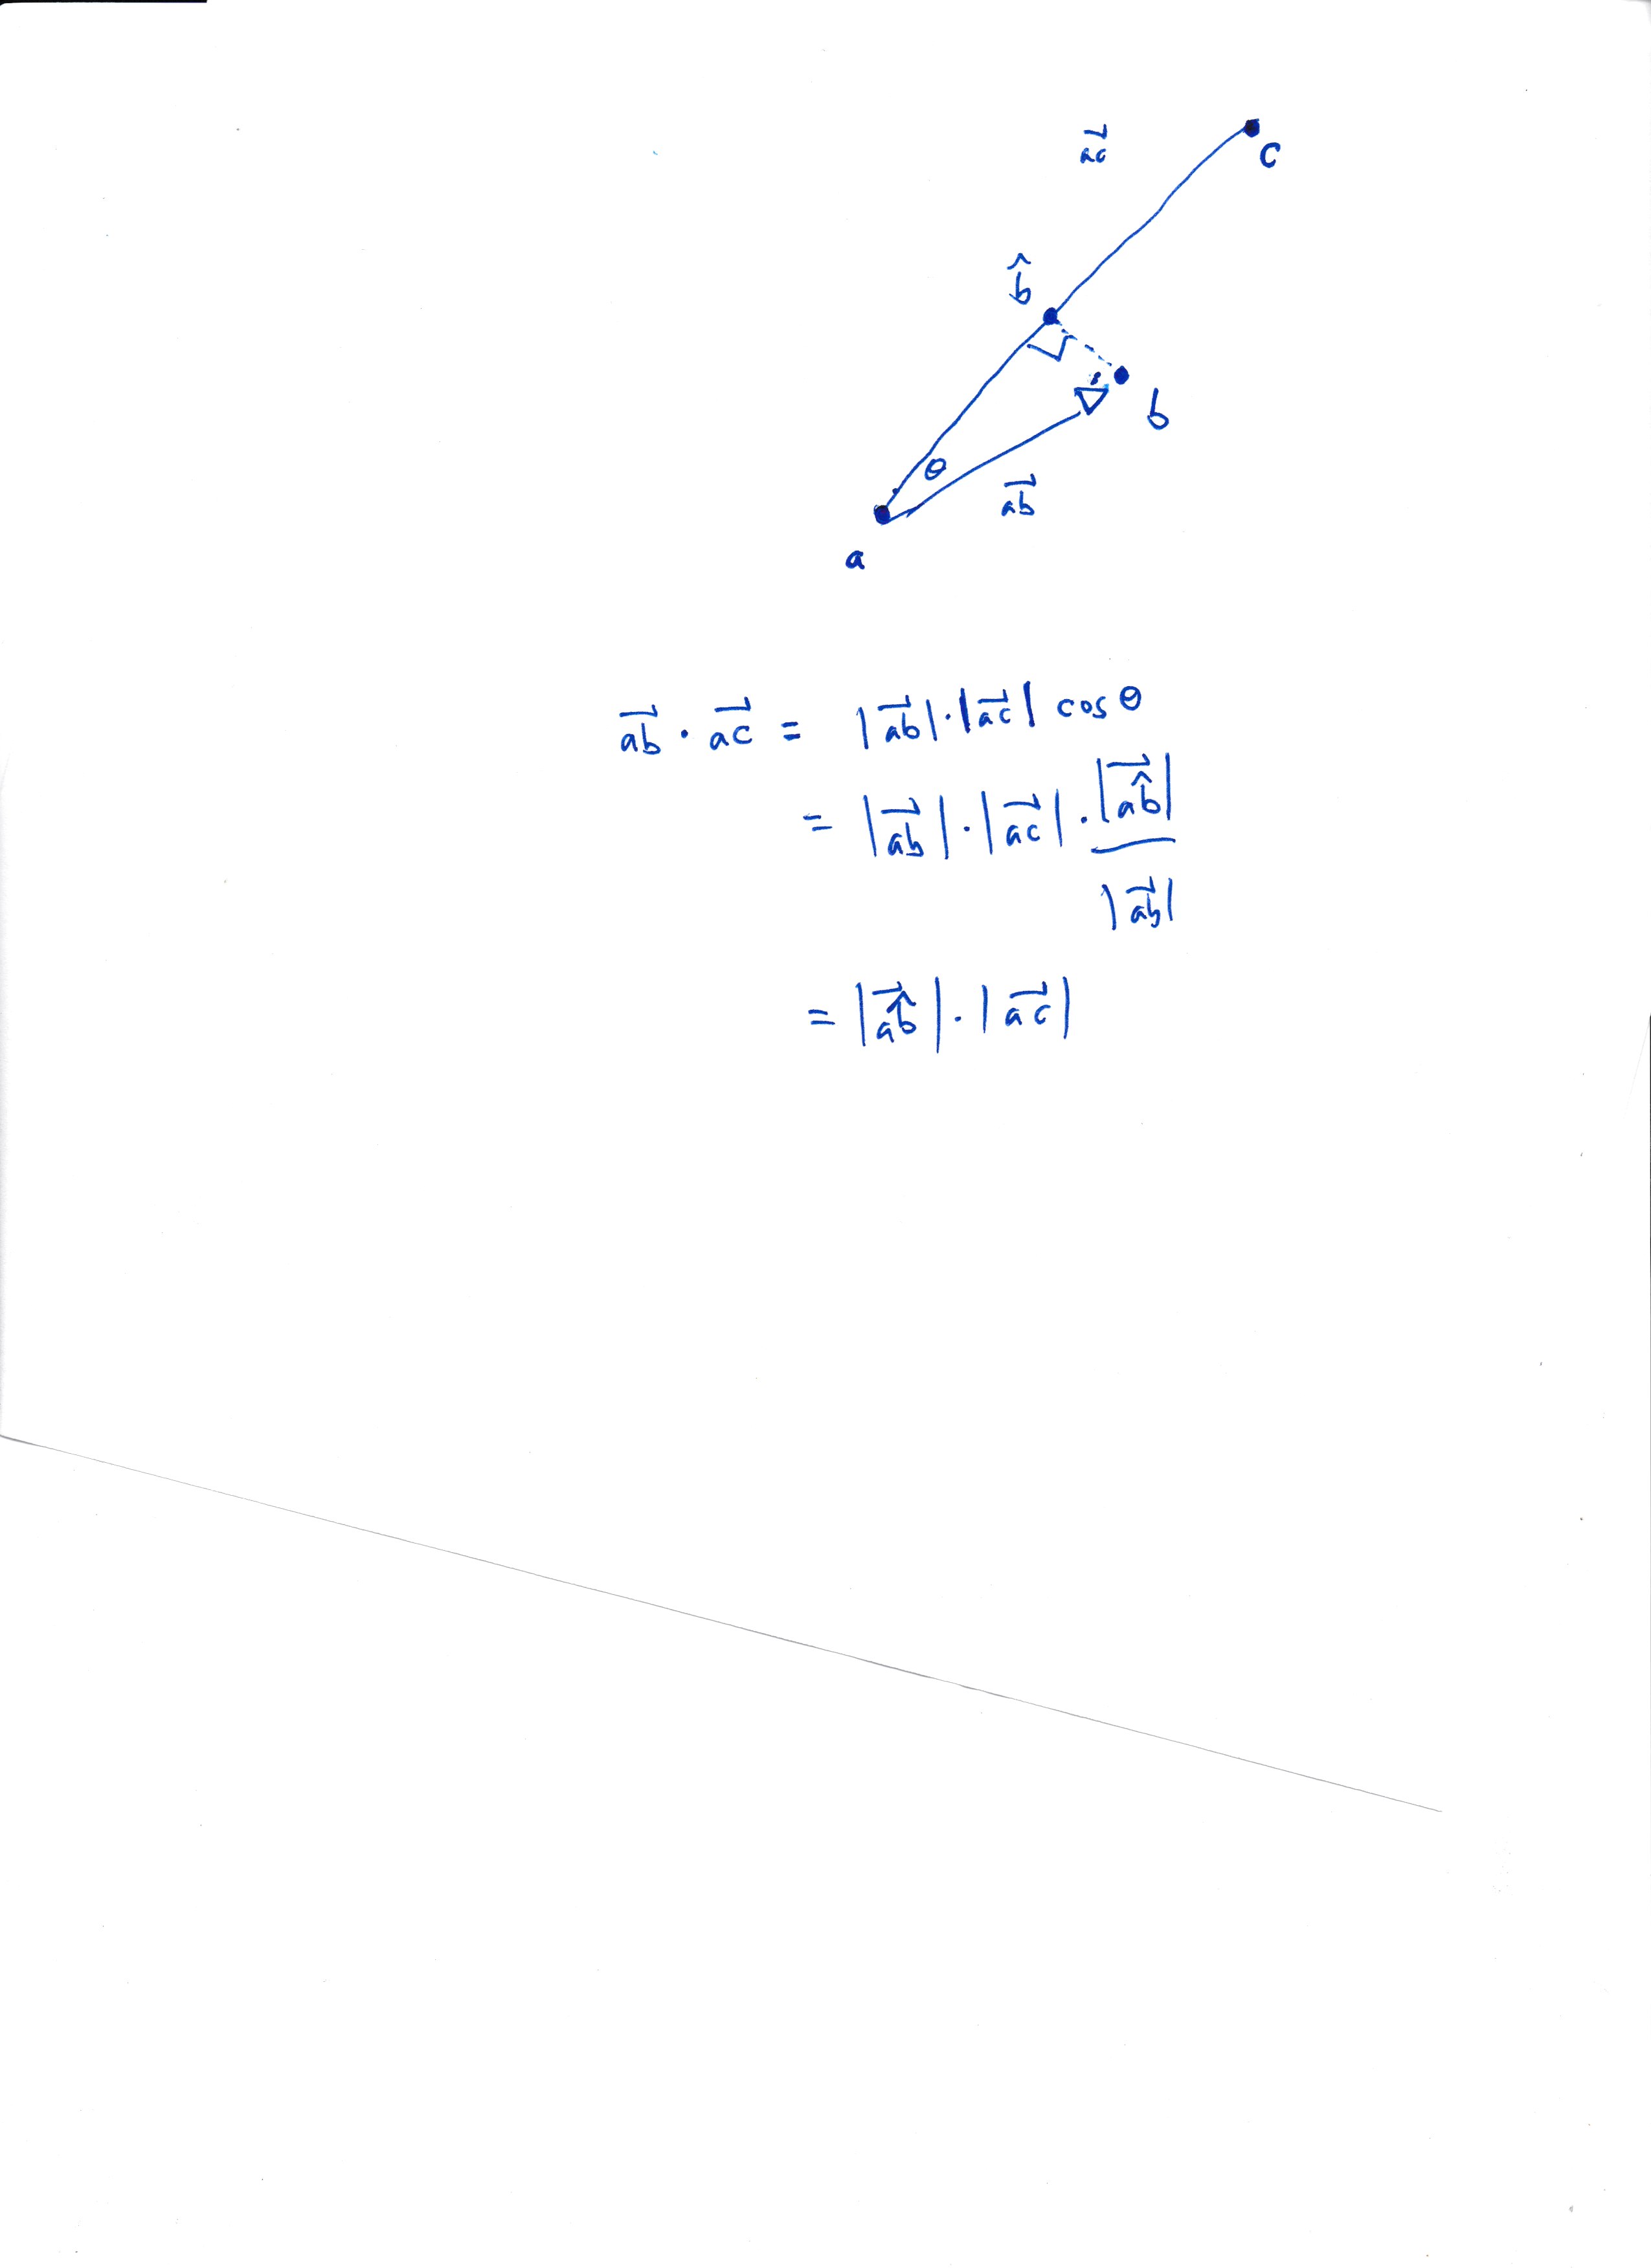 →ac
c
b̂
θ
b
→ab
a
→ab · →ac = |→ab| · |→ac| cos θ
= |→ab| · |→ac| · |→ab̂|
|→ab|
= |→ab̂| · |→ac|